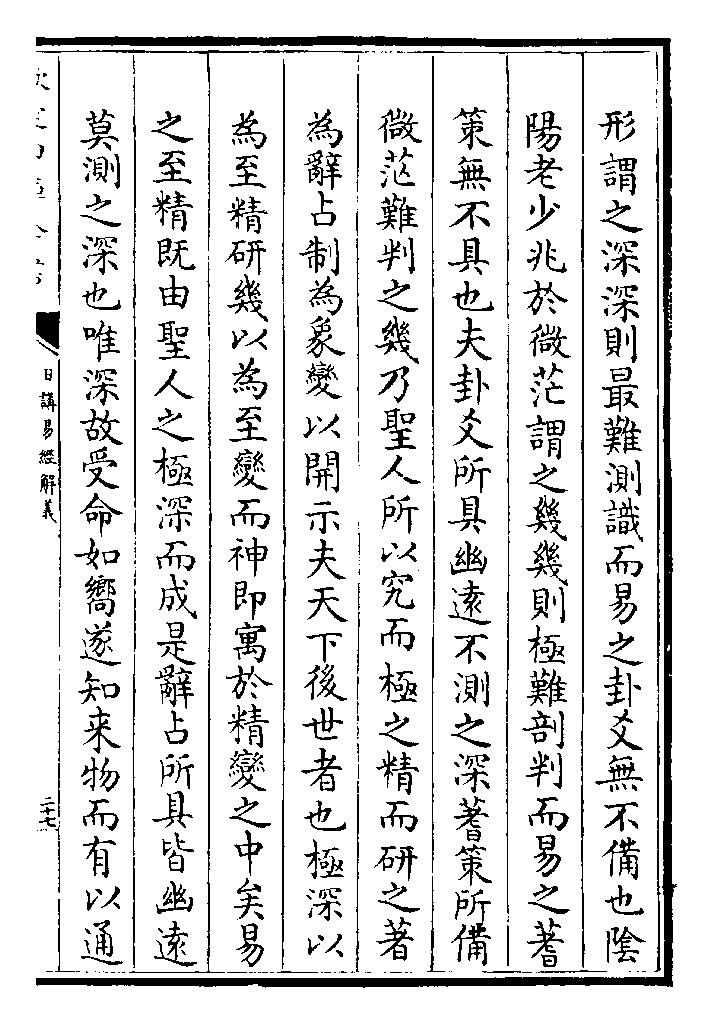 形謂之深深則最難測識而易之卦爻無不備也陰
陽老少兆於微茫謂之幾幾則極難剖判而易之蓍
策無不具也夫卦爻所具幽遠不測之深蓍策所備
微茫難判之幾乃聖人所以究而極之精而研之著
為辭占制為象變以開示夫天下後世者也極深以
為至精研幾以為至變而神即寓於精變之中矣易
之至精既由聖人之極深而成是辭占所具皆幽遠
莫測之深也唯深故受命如嚮遂知来物而有以通
日講易經解義
二十七